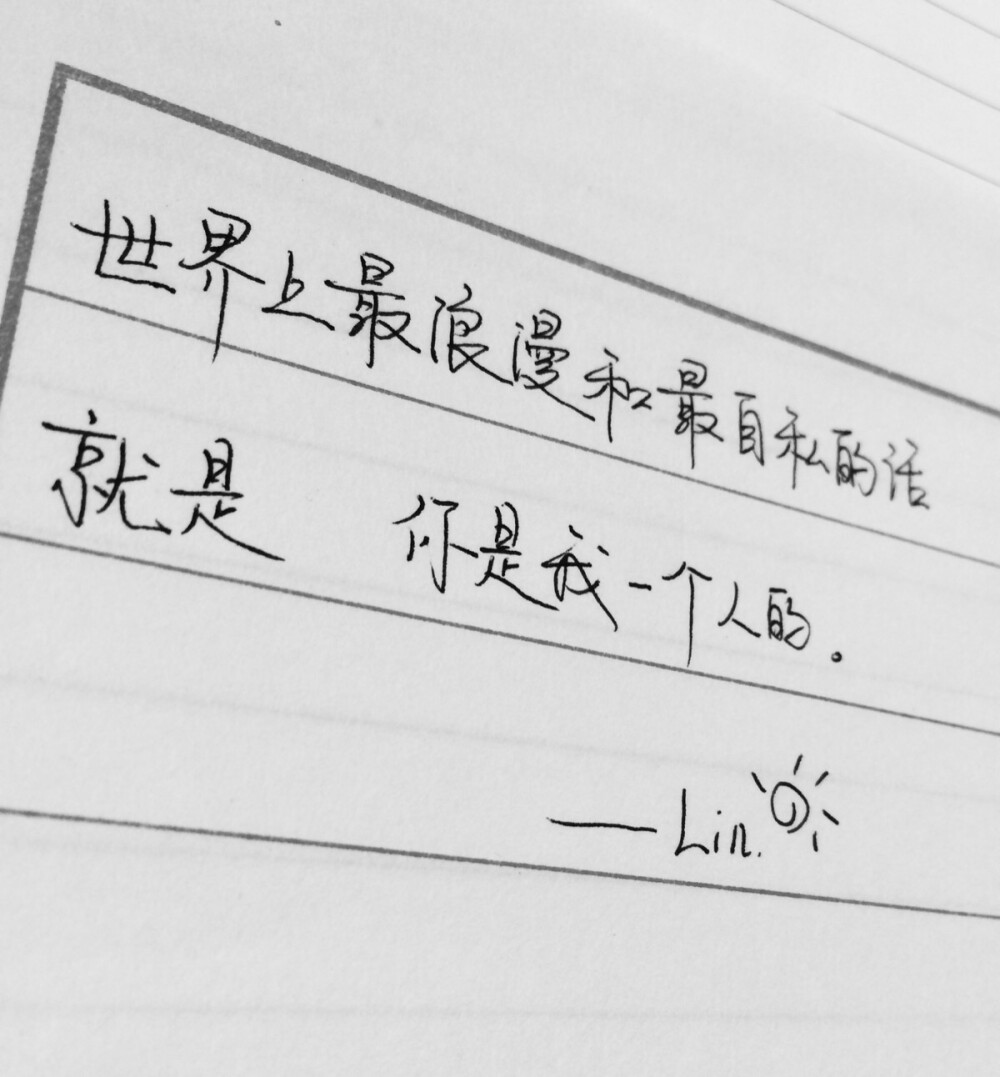 世界上最浪漫和最自私的话
就是 你是我一个人的。
——Lin.